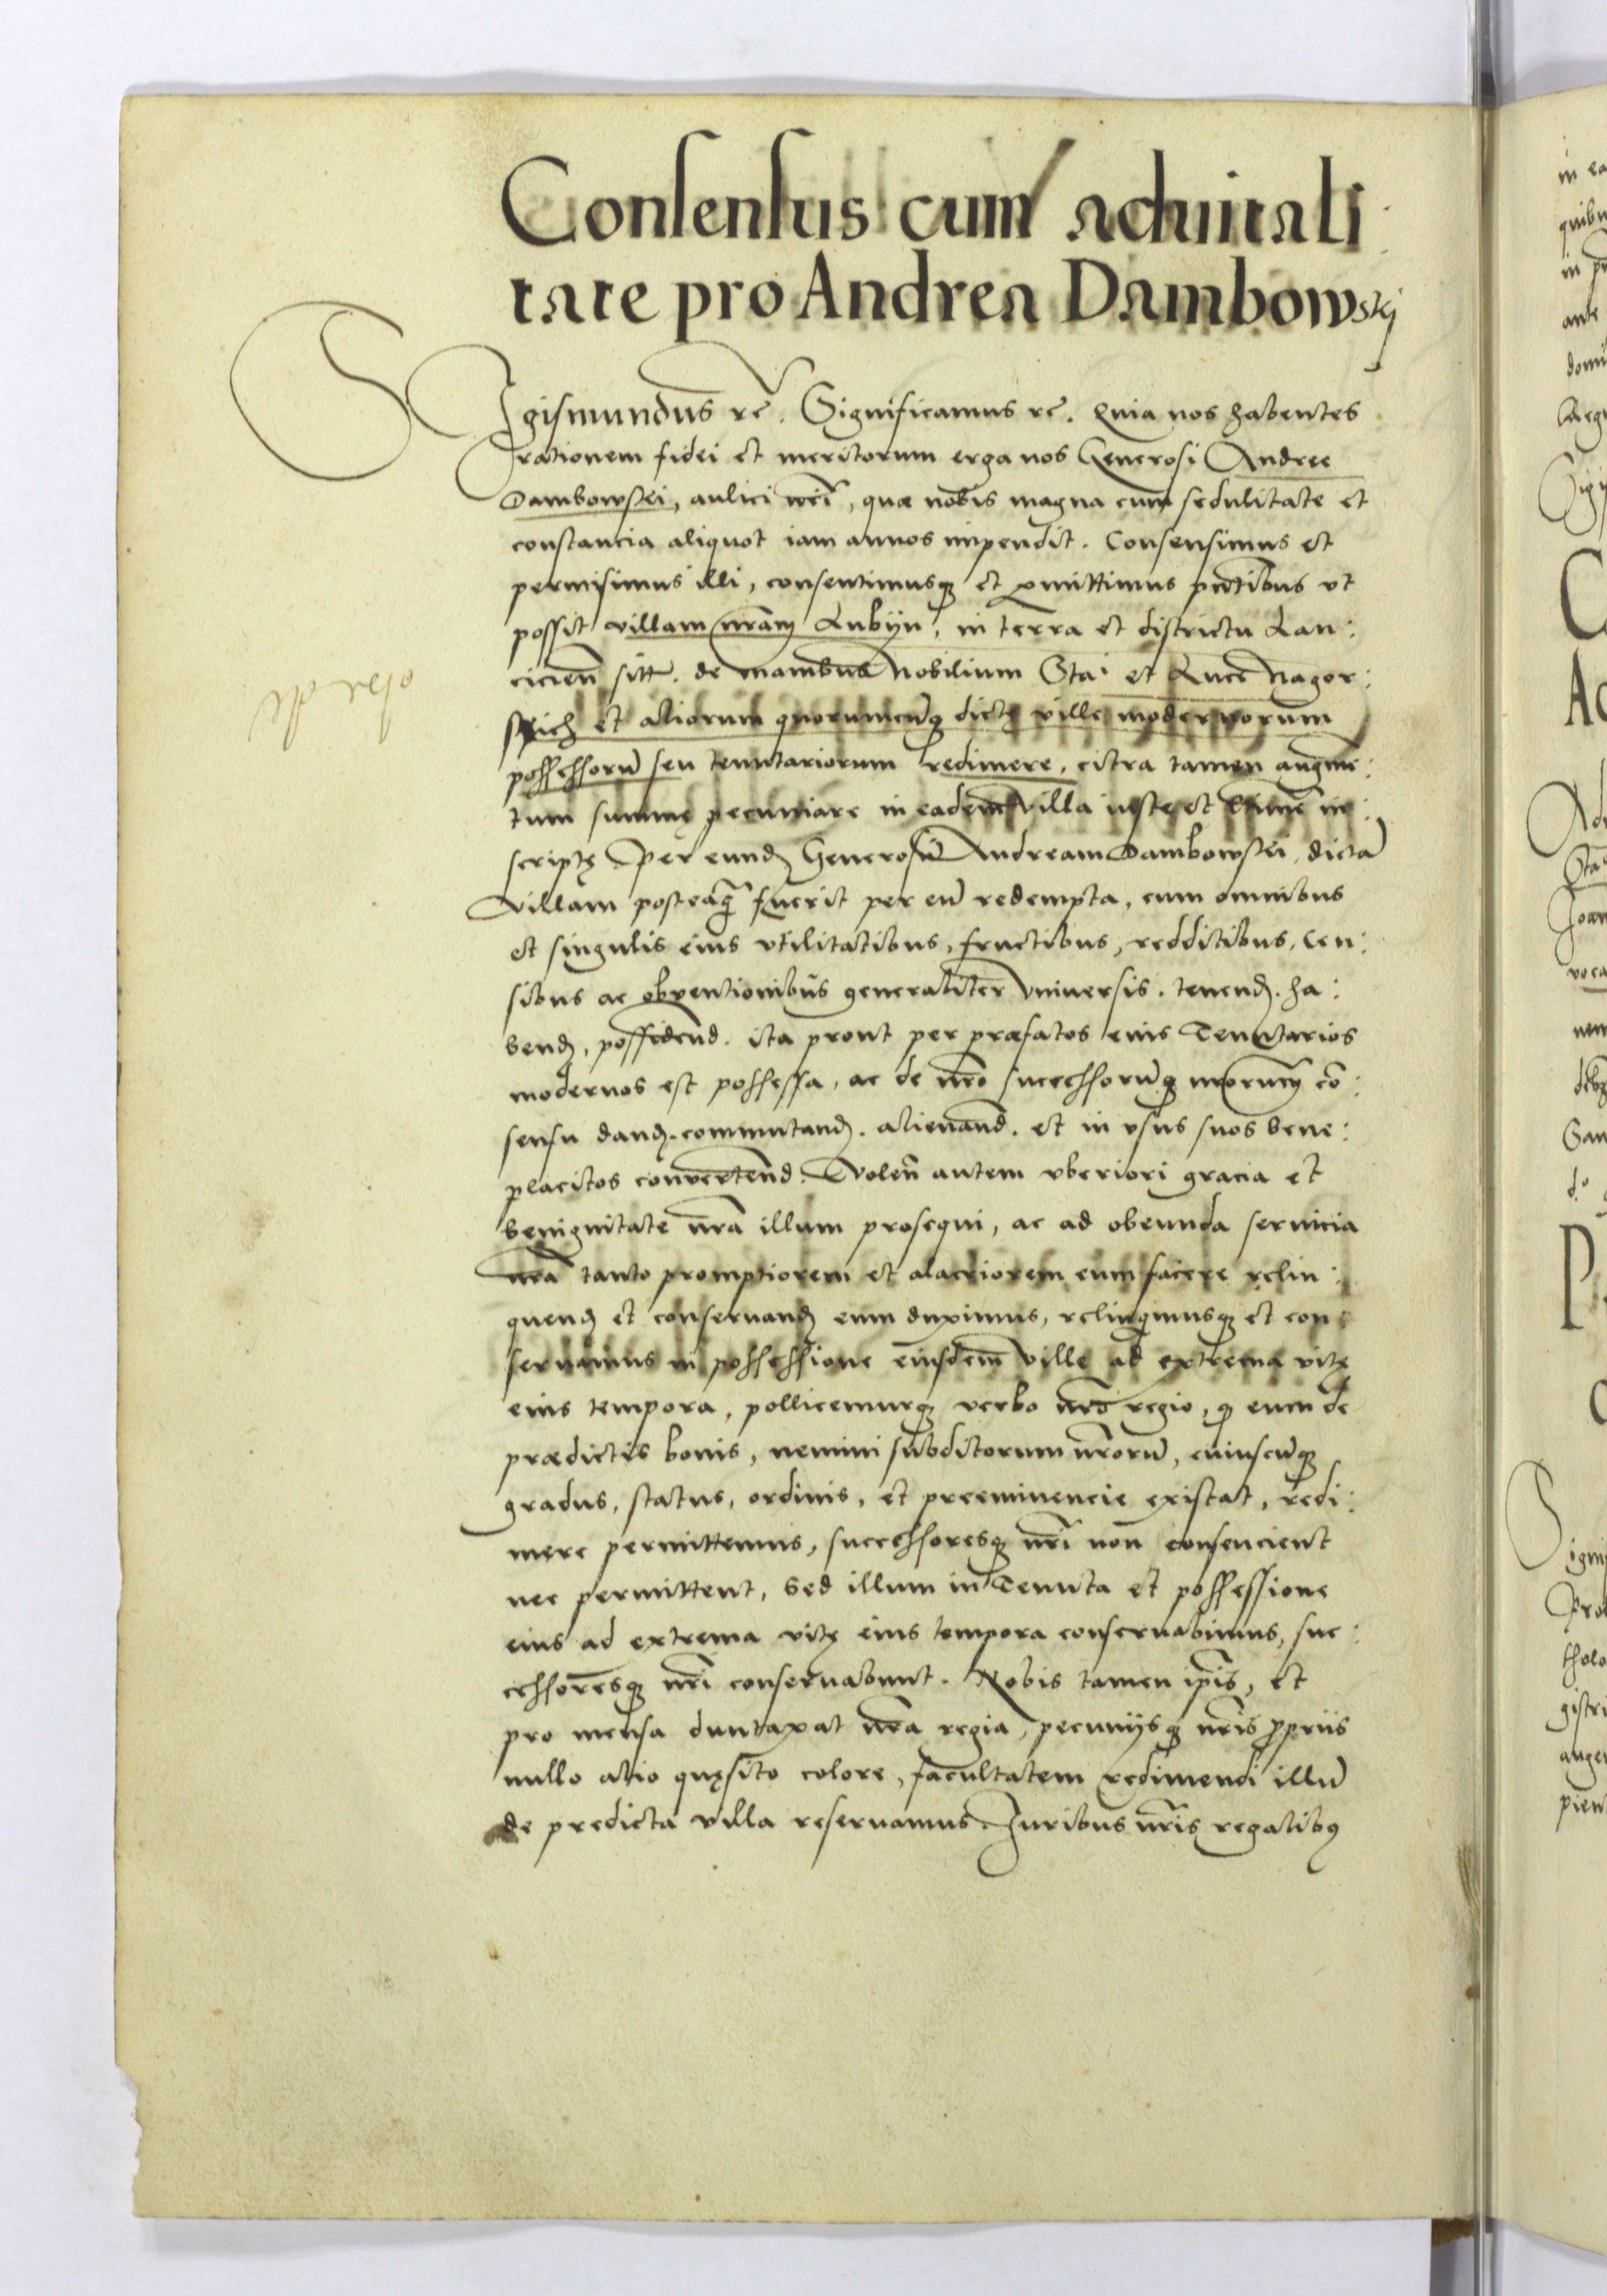 Consensus cum aduitali
tate pro Andrea Dambowskj
Sigismundus rc̃. Significamus rc̃. Quia nos habentes
rationem fidei et meritorum erga nos Generosi Andree
Dambowski, aulici nr̃i, quæ nobis magna cum sedulitate et
constancia aliquot iam annos impendit. Consensimus et
permisimus illi, consentimusq; et permittimus pñtibus vt
possit villam nr̃am Lubyn, in terra et districtu Lan:
cicien̄ sitt. de manibus Nobilium Sta: et Luce Nagor:
skich et aliorum quorumcunq; dictę ville modernorum
possessorū seu tenutariorum redimere, citra tamen augmē:
tum summę pecuniare in eadem villa iuste et in:
scriptę Per eund; Generosū Andream Dambowski, dictā
villam posteaq̃ fuerit per eū redempta, cum omnibus
et singulis eius vtilitatibus, fructibus, redditibus, Cen:
sibus ac obventionibus generaliter vniuersis. tenend;. ha:
bend;, possidend. ita prout per præfatos eius Tenutarios
modernos est possessa, ac de nr̃o successorūq; nr̃orum cō:
sensu dand;. commutand;. alienand. et in vsus suos bene:
placitos convertend. Volen̄ autem vberiori gracia et
benignitate nr̃a illum prosequi, ac ad obeunda seruicia
nr̃a tanto promptiorem et alacriorem eum facere relin:
quend; et conseruand; eum duximus, relinquimusq; et con:
seruamus in possessione eiusdem ville ad extrema vitę
eius tempora, pollicemurq; verbo nr̃o regio, q; eum de
prædictis bonis, nemini subditorum nr̃orū, cuiuscūq;
gradus, status, ordinis, et preeminencie existat, redi:
mere permittemus, successoresq; nr̃i non consencient
nec permittent, sed illum in Tenuta et possessione
eius ad extrema vitę eius tempora conseruabimus, suc:
cessoresq; nr̃i conseruabunt. Nobis tamen ip̃is, et
pro mensa duntaxat nr̃a regia, pecunijsq; nr̃is propriis
nullo alio quęsito colore, facultatem redimendi illū
de predicta villa reseruamus Iuribus nr̃is regalibus